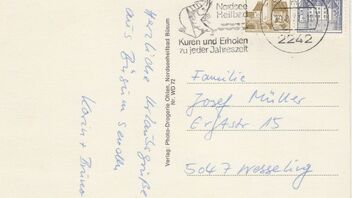 Herzliche Urlaubsgrüße
aus Büsum senden
Karin + Bruno
Verlag: Photo-Drogerie Ohlen, Nordseeheilbad Büsum
Nr. WD 72
Nordsee
Heilbad
Kuren und Erholen
zu jeder Jahreszeit
2242
Familie
Josef Müller
Erftstr 15
5047 Wesseling